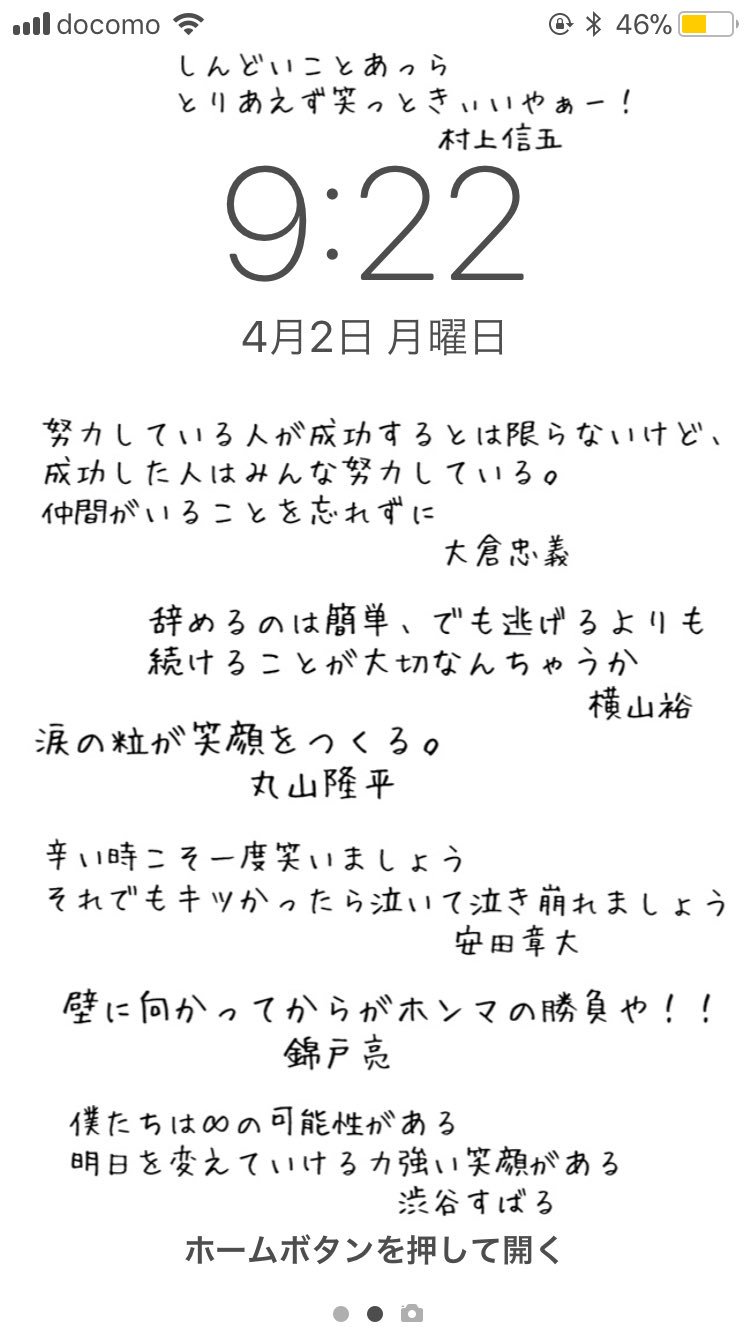 docomo 46%
しんどいことあっら
とりあえず笑っときぃいいやぁー！
村上信五
9:22
4月2日 月曜日
努力している人が成功するとは限らないけど、
成功した人はみんな努力している。
仲間がいることを忘れずに
大倉忠義
辞めるのは簡単、でも逃げるよりも
続けることが大切なんちゃうか
横山裕
涙の粒が笑顔をつくる。
丸山隆平
辛い時こそ一度笑いましょう
それでもキツかったら泣いて泣き崩れましょう
安田章大
壁に向かってからがホンマの勝負や！！
錦戸亮
僕たちは∞の可能性がある
明日を変えていける力強い笑顔がある
渋谷すばる
ホームボタンを押して開く